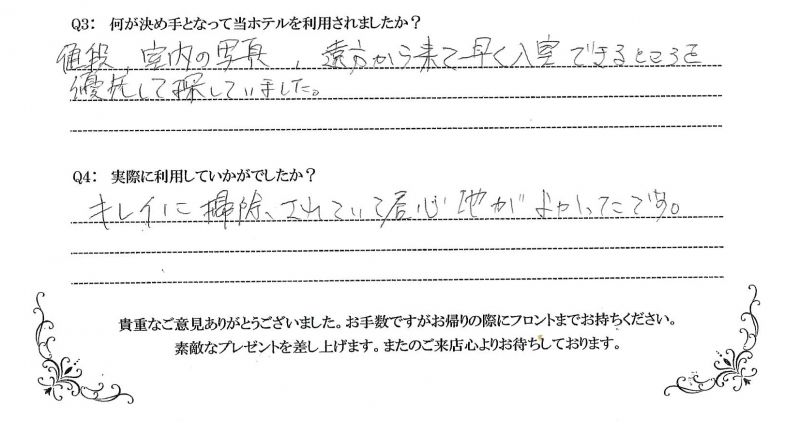 Q3: 何が決め手となって当ホテルを利用されましたか?
値段、室内の写真、遠方から来て早く入室できるところを
優先して探していました。
Q4: 実際に利用していかがでしたか?
キレイに掃除されていて居心地がよかったです。
貴重なご意見ありがとうございました。お手数ですがお帰りの際にフロントまでお持ちください。
素敵なプレゼントを差し上げます。またのご来店心よりお待ちしております。